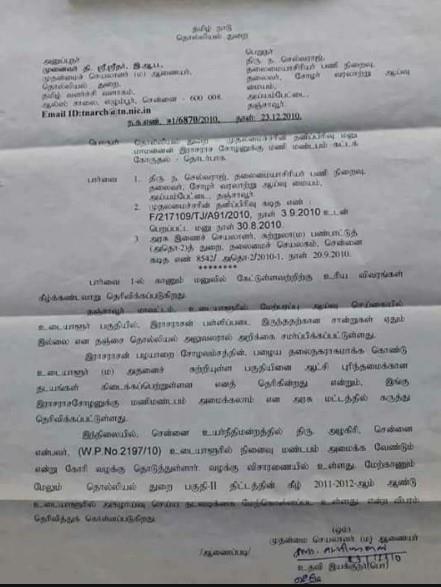 தமிழ் நாடு
தொல்லியல் துறை
அனுப்புநர்
முனைவர் தி. ஸ்ரீதர், இ.ஆ.ப.,
முதன்மைச் செயலாளர் (ம) ஆணையர்,
தொல்லியல் துறை,
தமிழ் வளர்ச்சி வளாகம்,
ஆல்ஸ் சாலை, எழும்பூர், சென்னை - 600 008.
Email ID:tnarch@tn.nic.in
பெறுநர்
திரு. ந. செல்வராஜ்,
தலைமையாசிரியர் பணி நிறைவு,
தலைவர், சோழர் வரலாற்று ஆய்வு
மையம்,
அய்யம்பேட்டை,
தஞ்சாவூர்.
ந.க.எண். அ1/6870/2010, நாள். 23.12.2010.
பொருள் தொல்லியல் துறை முதலமைச்சரின் தனிப்பிரிவு மனு
மாமன்னன் இராசராச சோழனுக்கு மணி மண்டபம் கட்டக்
கோருதல் - தொடர்பாக.
பார்வை 1. திரு. ந. செல்வராஜ், தலைமையாசிரியர் பணி நிறைவு,
தலைவர், சோழர் வரலாற்று ஆய்வு மையம்,
அய்யம்பேட்டை, தஞ்சாவூர்
2. முதலமைச்சரின் தனிப்பிரிவு கடித எண்
F/217109/TJ/A91/2010, நாள் 3.9.2010 உடன்
பெறப்பட்ட மனு நாள் 30.8.2010.
3. அரசு இணைச் செயலாளர், சுற்றுலா(ம) பண்பாட்டுத்
(அதொ-2)த் துறை, தலைமைச் செயலகம், சென்னை
கடித எண் 8542/ அதொ-2/2010-1, நாள். 20.9.2010.
********
பார்வை 1-ல் காணும் மனுவில் கேட்டுள்ளவற்றிற்கு உரிய விவரங்கள்
கீழ்க்கண்டவாறு தெரிவிக்கப்படுகிறது.
தஞ்சாவூர் மாவட்டம், உடையாளூரில் மேற்பரப்பு ஆய்வு செய்கையில்
உடையாளூர் பகுதியில், இராசராசன் பள்ளிப்படை இருந்ததற்கான சான்றுகள் ஏதும்
இல்லை என தஞ்சை தொல்லியல் அலுவலரால் அறிக்கை சமர்ப்பிக்கப்பட்டுள்ளது.
இராசராசன் பழயாறை சோழவம்சத்தின், பழைய தலைநகராகமாக்க கொண்டு
உடையாளூர் (ம) அதனைச் சுற்றியுள்ள பகுதியினை ஆட்சி புரிந்தமைக்கான
தடயங்கள் கிடைக்கப்பெற்றுள்ளன எனத் தெரிகின்றது என்றும், இங்கு
இராசராசசோழனுக்கு மணிமண்டபம் அமைக்கலாம் என அரசு மட்டத்தில் கருத்து
தெரிவிக்கப்பட்டுள்ளது.
இந்நிலையில், சென்னை உயர்நீதிமன்றத்தில் திரு. அழுகிரி, சென்னை
என்பவர், (W.P.No.2197/10) உடையாளூரில் நினைவு மண்டபம் அமைக்க வேண்டும்
என்று கோரி வழக்கு தொடுத்துள்ளார். வழக்கு விசாரணையில் உள்ளது. மேற்காணும்
மேலும் தொல்லியல் துறை பகுதி-II திட்டத்தின் கீழ் 2011-2012-ஆம் ஆண்டு
உடையாளூரில் அகழாய்வு செய்ய நடவடிக்கை மேற்கொள்ளப்பட உள்ளது என்ற விபரம்
தெரிவித்துக் கொள்ளப்படுகிறது.
(ஒம்)
முதன்மை செயலாளர் (ம) ஆணையர்
/ஆணைப்படி/
உதவி இயக்குநர்(பொ)